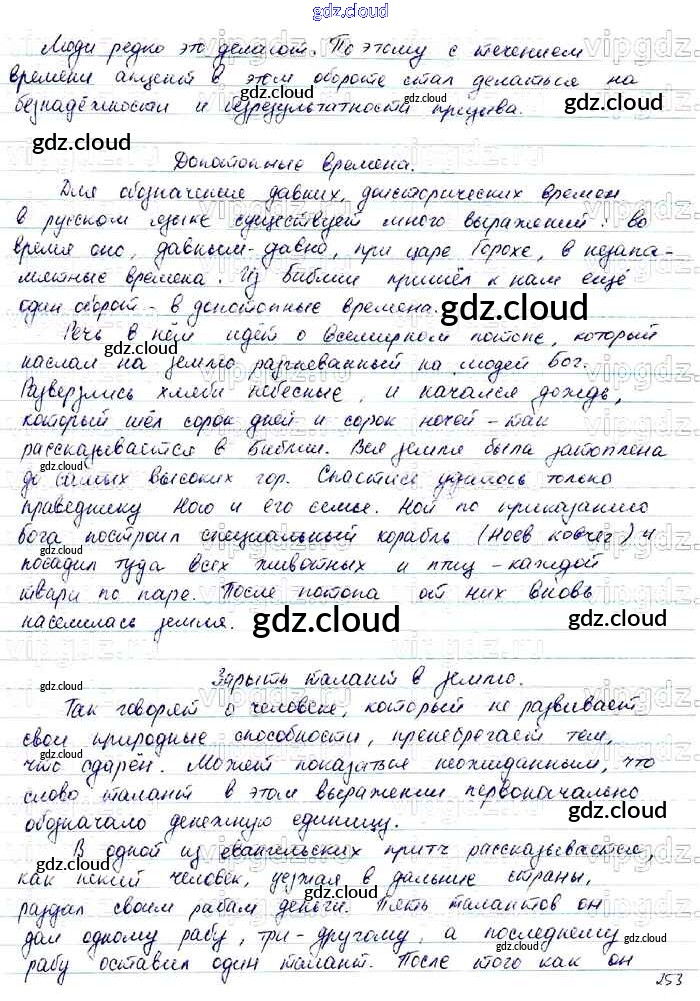 gdz.cloud
Люди редко это делают. Поэтому с течением
времени акцент в этом обороте стал делаться на
безнадёжности и безрезультатности призыва.
Допотопные времена.
Для обозначения давних, доисторических времен
в русском языке существует много выражений: во
время оно, давным-давно, при царе Горохе, в незапа-
мятные времена. Из Библии пришёл к нам ещё
один оборот - в допотопные времена.
Речь в нём идёт о всемирном потопе, который
наслал на землю разгневанный на людей бог.
Разверзлись хляби небесные, и начался дождь,
который шёл сорок дней и сорок ночей - так
рассказывается в Библии. Вся земля была затоплена
до самых высоких гор. Спастись удалось только
праведнику Ною и его семье. Ной по приказанию
бога построил специальный корабль (Ноев ковчег) и
посадил туда всех животных и птиц - каждой
твари по паре. После потопа от них вновь
населилась земля.
Зарыть талант в землю.
Так говорят о человеке, который не развивает
свои природные способности, пренебрегает тем,
чем одарён. Может показаться неожиданным, что
слово талант в этом выражении первоначально
обозначало денежную единицу.
В одной из евангельских притч рассказывается,
как некий человек, уезжая в дальние страны,
раздал своим рабам деньги. Пять талантов он
дал одному рабу, три - другому, а последнему
рабу оставил один талант. После того как он
253